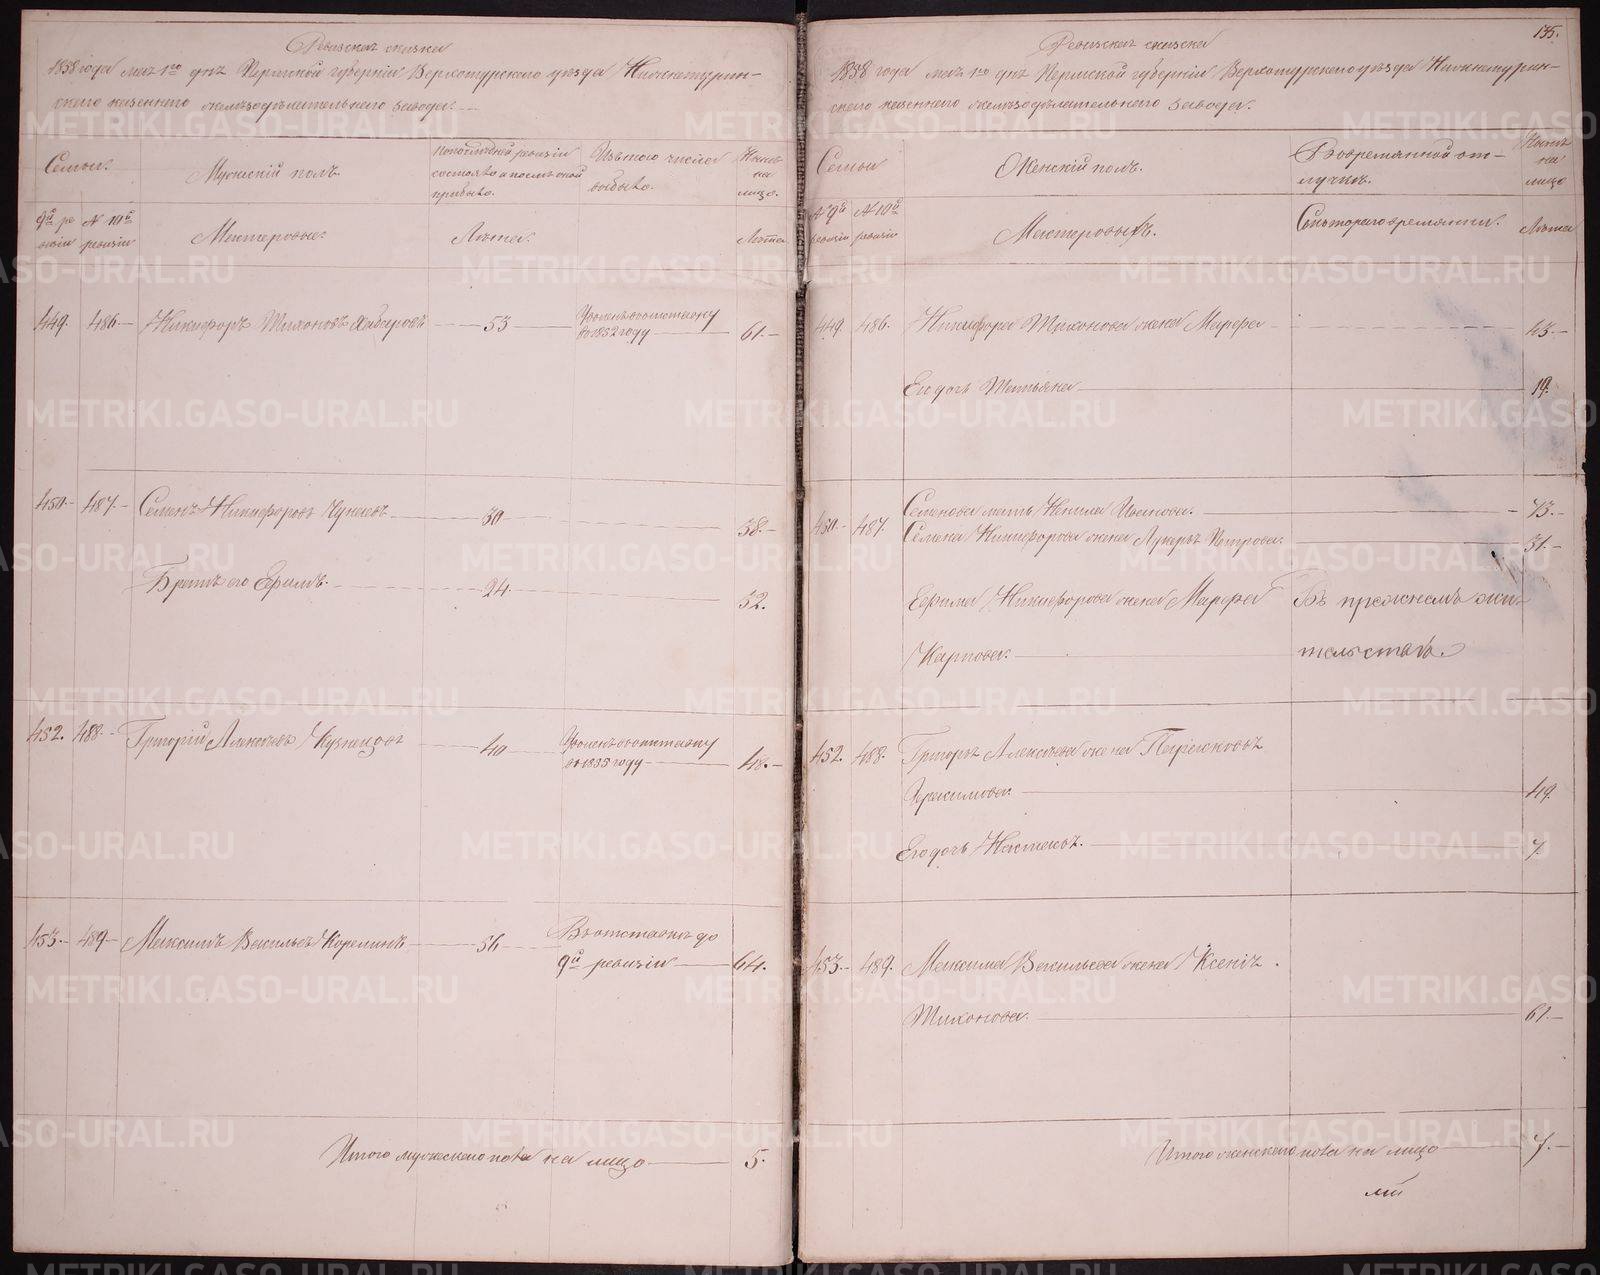 Ревизская сказка
1858 года мая 1го дня Пермской губернiи Верхотурского уѣзда Нижнетурин-
ского казеннаго желѣзодѣлательнаго завода.
Семьи.
Мужескiй полъ.
По послѣдней ревизiи
состояло и послѣ оной
прибыло.
Изъ того числа
выбыло.
Нынѣ
на
лицо.
9й ре
визiи
N 10й
ревизiи
Мастеровые.
Лѣта.
Лѣта
449. 486. Никифоръ Тихоновъ 53
Уволенъ въ отставку
въ 1852 году 61.
450. 487. Семенъ Никифоровъ 30 38.
Братъ его Ефимъ. 24 32.
452. 488. Григорiй Алексѣевъ Кузнецовъ 40
Уволенъ въ отставку
въ 1855 году 48.
453. 489. Максимъ Васильевъ Корелинъ 56
Въ отставкѣ до
9й ревизiи 64.
Итого мужескаго пола на лицо 5.
135.
Ревизская сказка
1858 года мая 1го дня Пермской губернiи Верхотурского уѣзда Нижнетурин-
ского казеннаго желѣзодѣлательнаго завода.
Семьи
Женскiй полъ.
Во временной от-
лучкѣ.
Нынѣ
на
лицо
N 9й
ревизiи
N 10й
ревизiи
Мастеровыхъ.
Съ котораго времяни.
Лѣта
449. 486. Никифора Тихонова жена Марфа 43.
Его дочь Татьяна 19.
450. 487. Семенова мать Ненила Иванова. 73.
Семена Никифорова жена Лукерья Петрова. 31.
Ефима Никифорова жена Марфа
Въ прежнемъ жи-
Карпова.
тельствѣ.
452. 488. Григорья Алексѣева жена Парасковья
Герасимова. 49.
Его дочь Настасья. 7.
453. 489. Максима Васильева жена Ксенiя
Тихонова. 61.
Итого женскаго пола на лицо 7.
METRIKI.GASO-URAL.RU